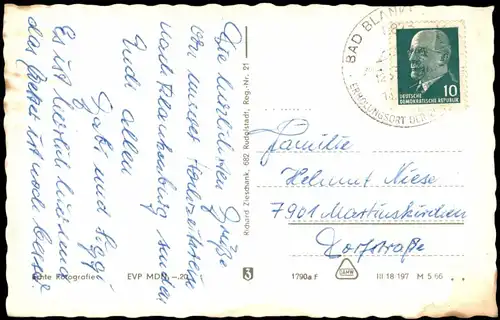 Die herzlichsten Grüße
von unserer Hochzeitsreise
nach Blankenburg senden
Euch allen
Gabi und Peggi
Es ist herrlich hier und
das Wetter ist noch besser
Echte Fotografie
EVP MDN –.20
Richard Zieschank, 682 Rudolstadt, Reg.-Nr. 21
3
BAD BLANK
6823
ERHOLUNGSORT DER
DEUTSCHE
DEMOKRATISCHE REPUBLIK
10
Familie
Helmut Niese
7901 Martinskirchen
Dorfstraße
1790a F
III 18 197 M 5 66